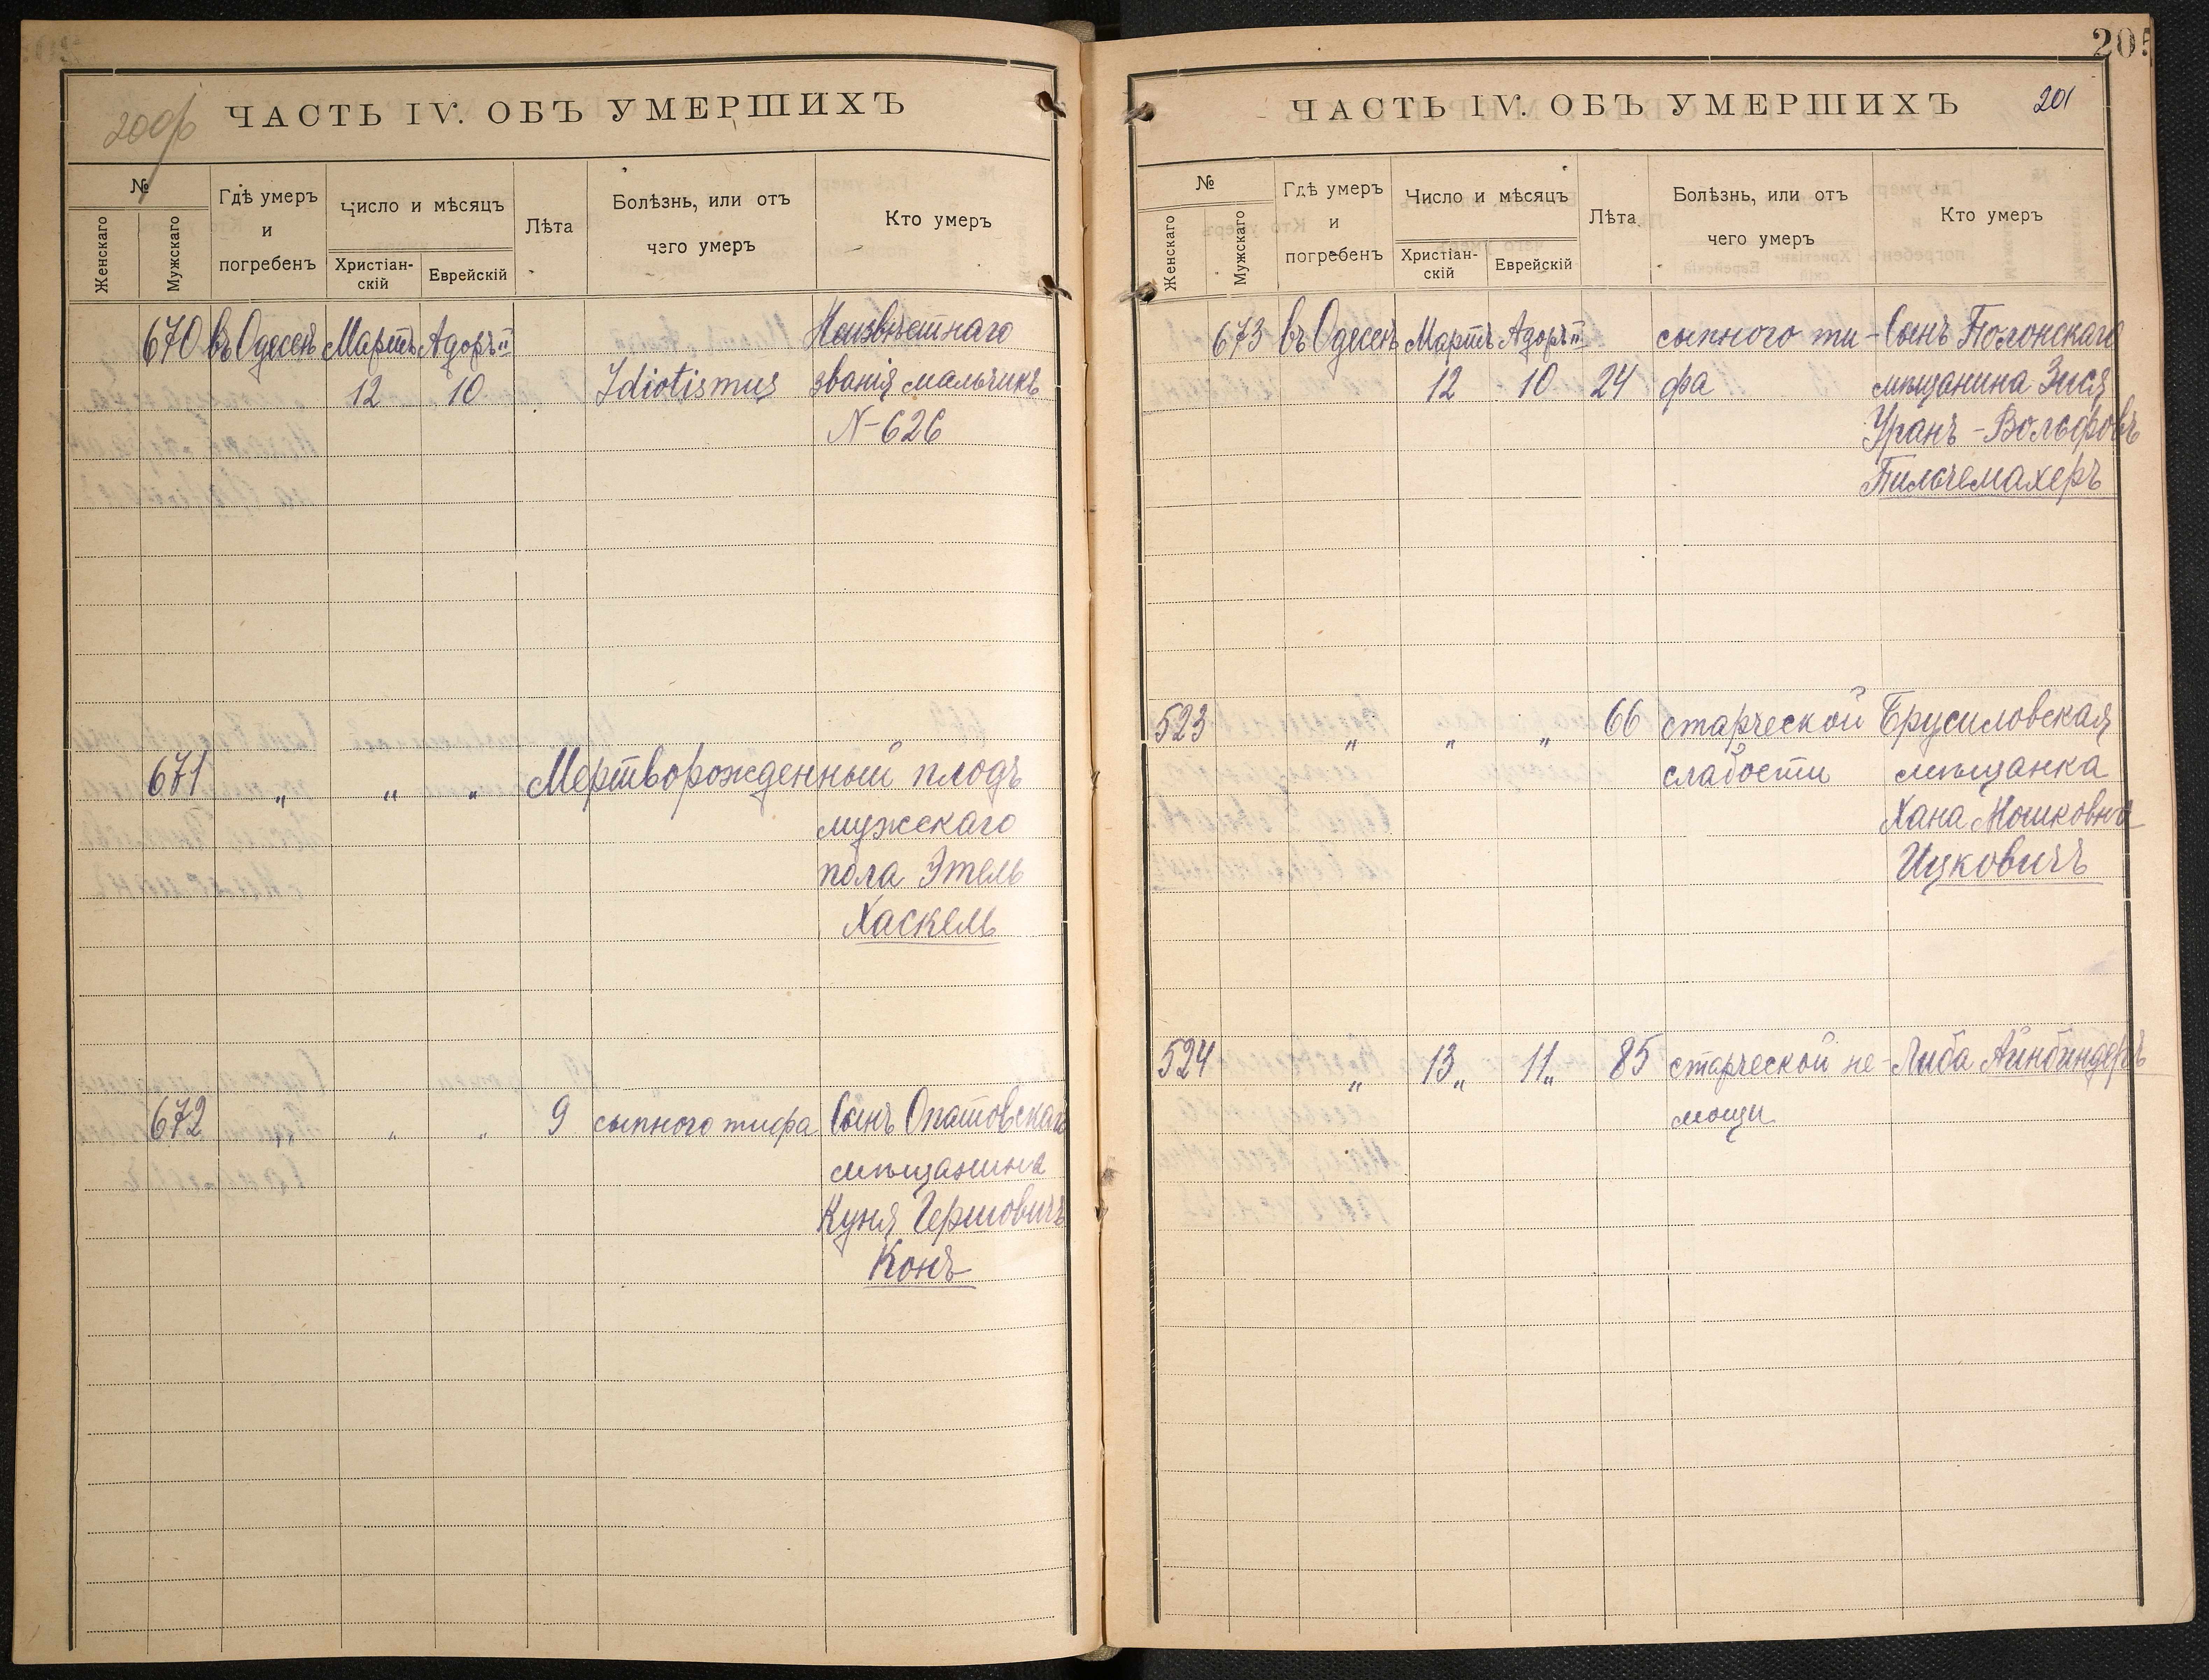 200об
ЧАСТЬ IV. ОБЪ УМЕРШИХЪ
№
Женскаго
Мужскаго
Гдѣ умеръ
и
погребенъ
Число и мѣсяцъ
Христіан-
скій
Еврейскій
Лѣта
Болѣзнь, или отъ
чего умеръ
Кто умеръ
670 въ Одессѣ Мартъ Адоръ II Неизвѣстнаго
12 10 Idiotismus званія мальчикъ
N-626
671 " " " Мертворожденный плодъ
мужскаго
пола Этель
Хаскель
672 " " " 9 сыпного тифа Сынъ Опатовскаго
мѣщанина
Куня Гершовичъ
Конъ
205
ЧАСТЬ IV. ОБЪ УМЕРШИХЪ
201
№
Женскаго
Мужскаго
Гдѣ умеръ
и
погребенъ
Число и мѣсяцъ
Христіан-
скій
Еврейскій
Лѣта
Болѣзнь, или отъ
чего умеръ
Кто умеръ
673 въ Одессѣ Мартъ Адоръ II сыпного ти- Сынъ Полонскаго
12 10 24 фа мѣщанина Зися
Уранъ-Вольфовъ
Пильчемахеръ
523 " " " 66 старческой Брусиловская
слабости мѣщанка
Хана Мошковна
Ицковичъ
524 " 13 " 11 " 85 старческой не- Либа Айнбиндеръ
мощи